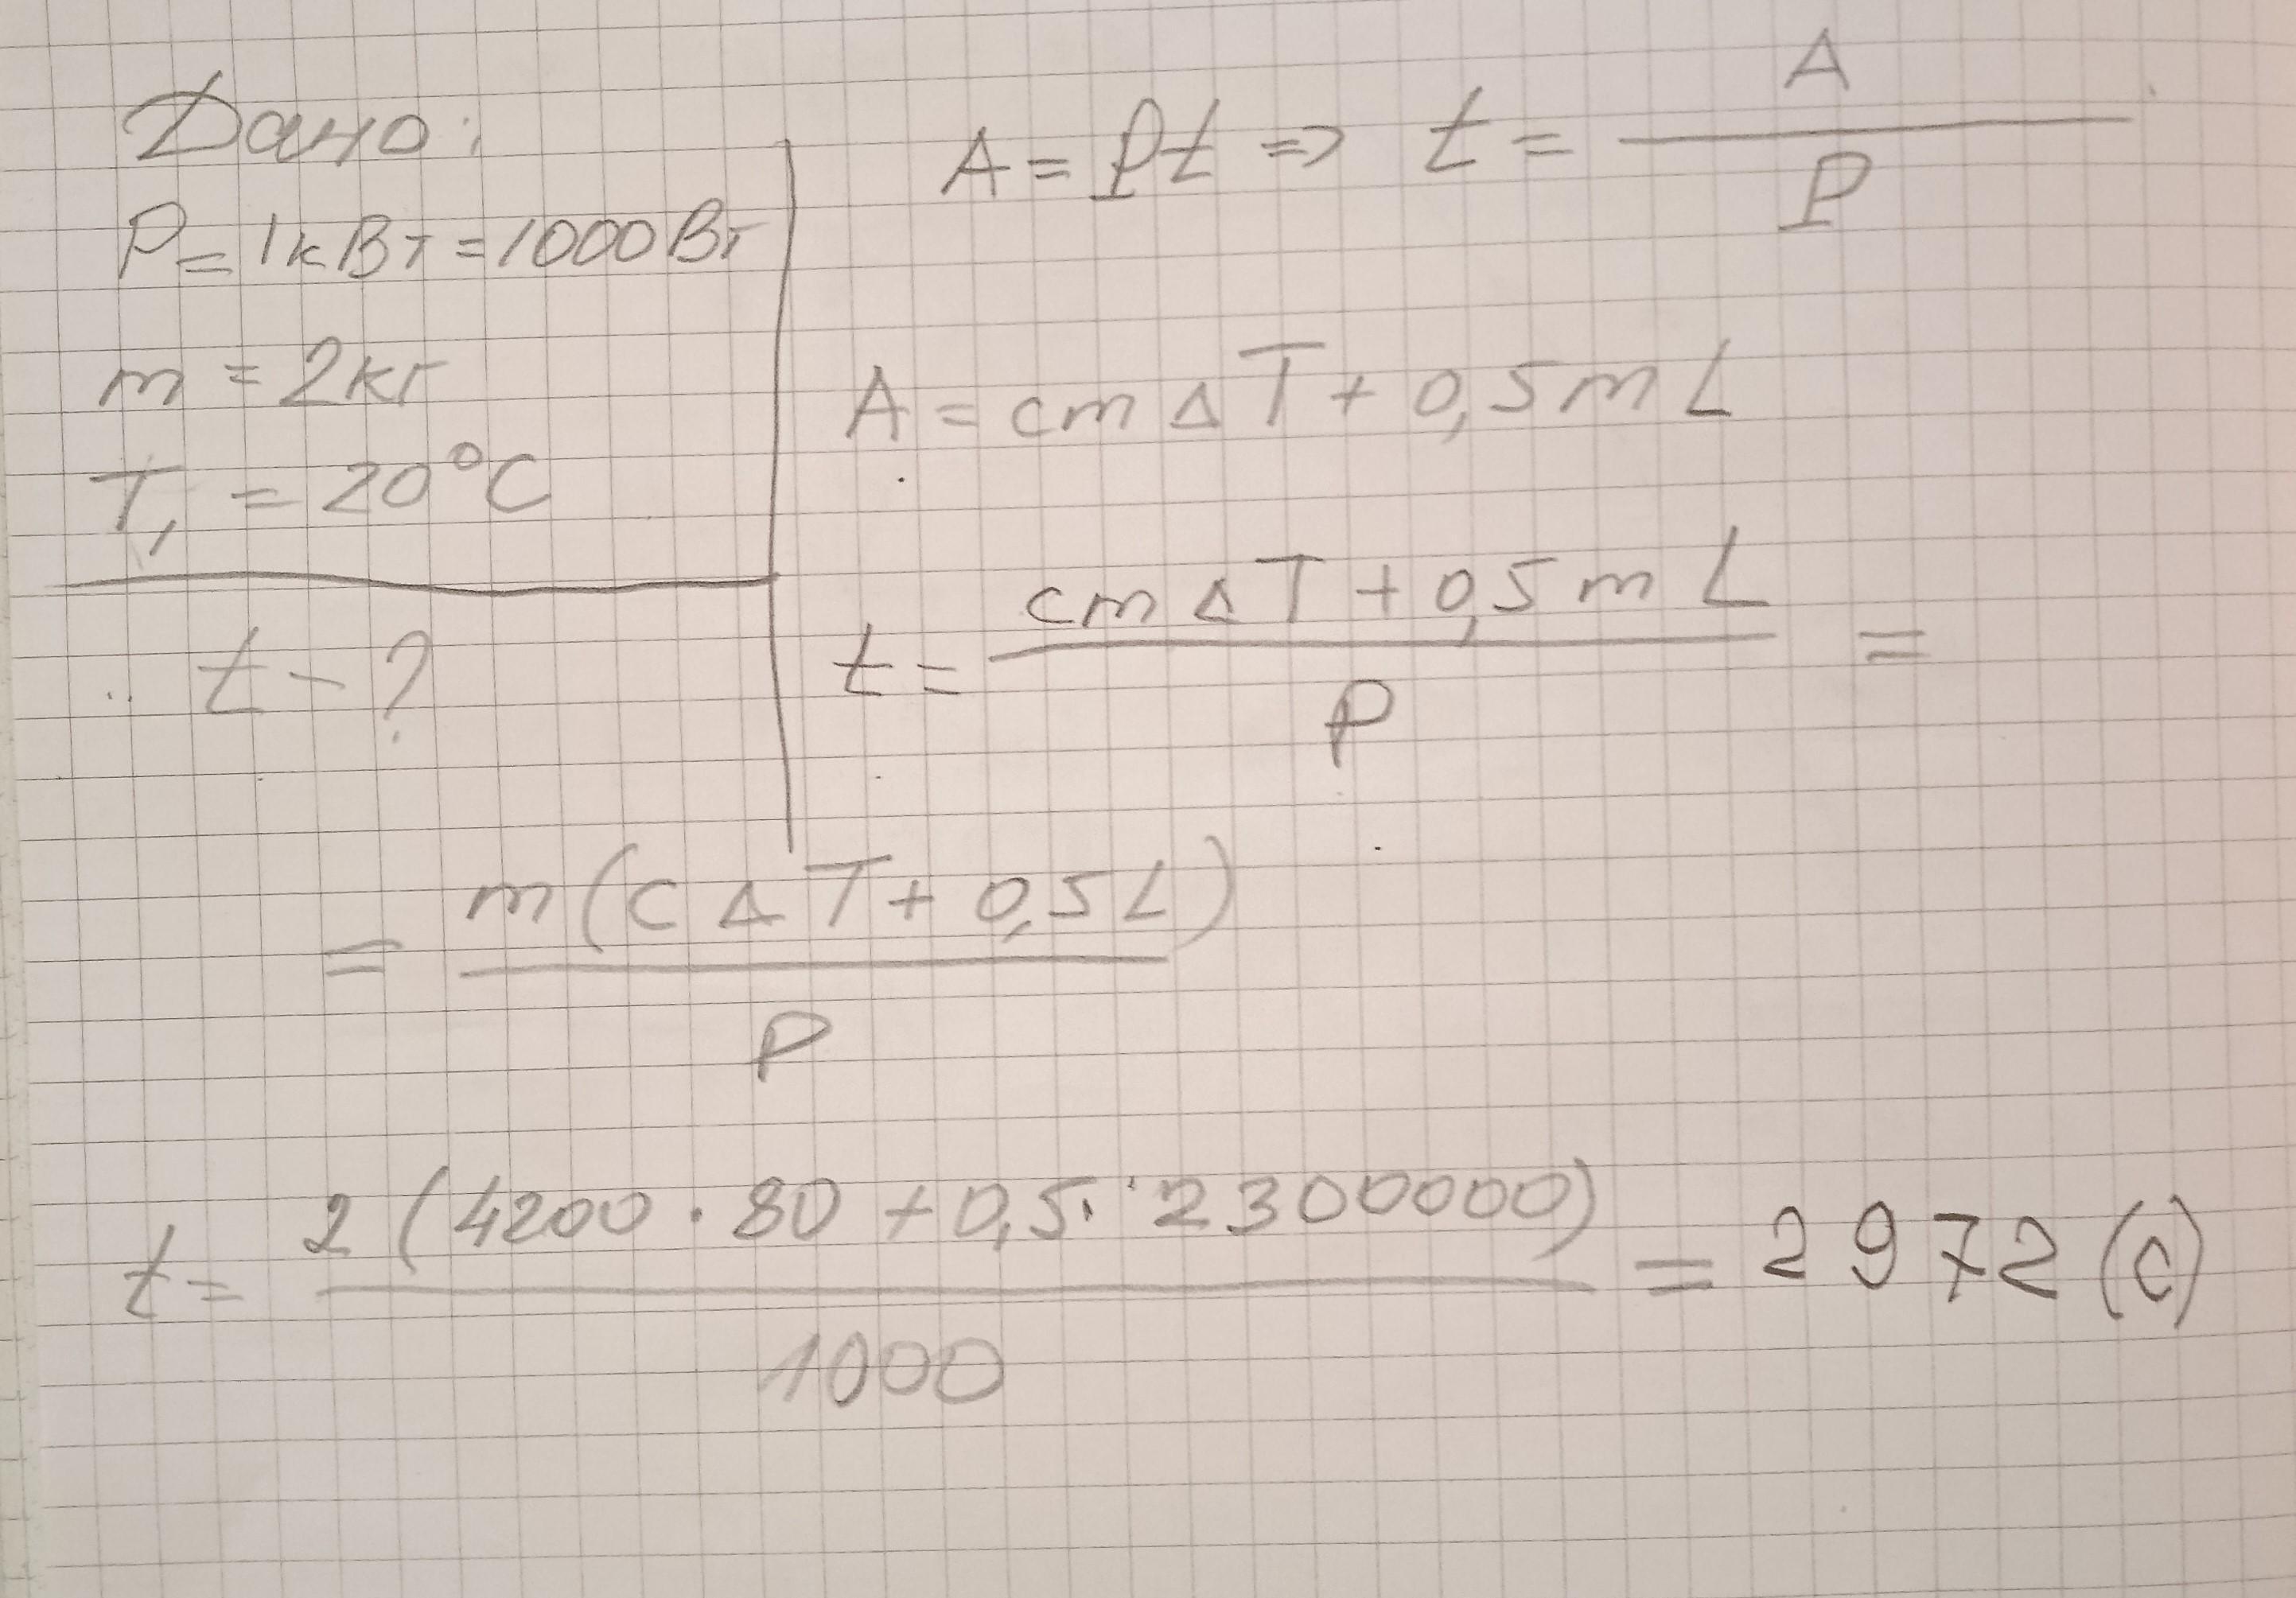 Дано:
P = 1кВт = 1000Вт
m = 2кг
T₁ = 20°C
t - ?
A = Pt => t = A / P
A = cm Δ T + 0,5 m L
t = (cm Δ T + 0,5 m L) / P =
= m (c Δ T + 0,5 L) / P
t = 2 (4200 · 80 + 0,5 · 2300000) / 1000 = 2972 (с)